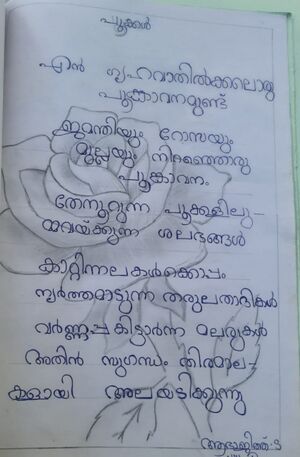 പൂക്കൾ
എൻ ഗൃഹവാതിൽക്കലൊരു
പൂങ്കാവനമുണ്ട്
ജമന്തിയും റോസയും
മുല്ലയും നിറഞ്ഞൊരു
പൂങ്കാവനം
തേനൂറുന്ന പൂക്കളിലു-
മ്മവയ്ക്കുന്ന ശലഭങ്ങൾ
കാറ്റിന്നലകൾക്കൊപ്പം
നൃർത്തമാടുന്ന തരുലതാദികൾ
വർണ്ണപ്പകിട്ടാർന്ന മലരുകൾ
അതിൻ സുഗന്ധം തിരമാല-
കളായി അലയടിക്കുന്നു